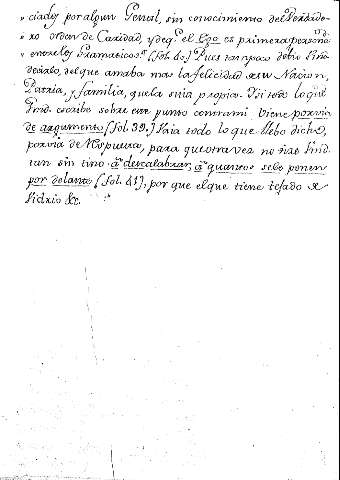 " ciado, por algun Genial, sin conocimiento del Verdade-
" ro orden de Caridad, y de q.e el Ego es primera persona
" entre los Pramaticos." (fol. 40.) Pues tampoco debio Vind.
decirlo, del que amaba mas la felicidad de su Nacion,
Patria, y familia, que la suia propria. Y si todo lo que
Vind. escribe sobre este punto contra mi viene por via
de argumento (fol. 39.) Vaia todo lo que llebo dicho,
por via de Respuesta, para que otra vez no
tan sin tino a descalabrar, a quantos se le ponen
por delante (fol. 41), por que el que tiene tejado de
Vidrio &c.